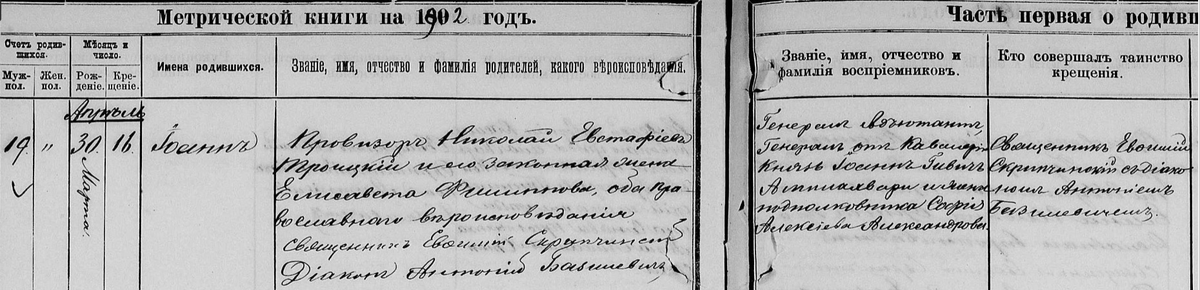 Метрической книги на 1902 годъ.
Часть первая о родивш
Счетъ родив-
шихся.
Муж-
пол.
Жен.
пол.
Мѣсяцъ и
число.
Рож-
деніе.
Кре-
щеніе.
Имена родившихся.
Званіе, имя, отчество и фамилія родителей, какого вѣроисповѣданія.
Званіе, имя, отчество и
фамилія воспріемниковъ.
Кто совершалъ таинство
крещенія.
Апрѣль
19. „ 30. 16.
Марта.
Іоаннъ
Провизоръ Николай Евстафіевъ
Троицкій и его законная жена
Елисавета Филиппова, оба пра-
вославнаго вѣроисповѣданія
Священникъ Евѳимій Скрипчинскій
Діаконъ Антоній Базилевичъ
Генералъ Адъютантъ,
Генералъ отъ Кавалеріи
Князь Іоаннъ Гивичъ
Амилахвари и жена
подполковника Софія
Алексіева Александрова.
Священникъ Евѳимій
Скрипчинскій съ діако-
номъ Антоніемъ
Базилевичемъ.